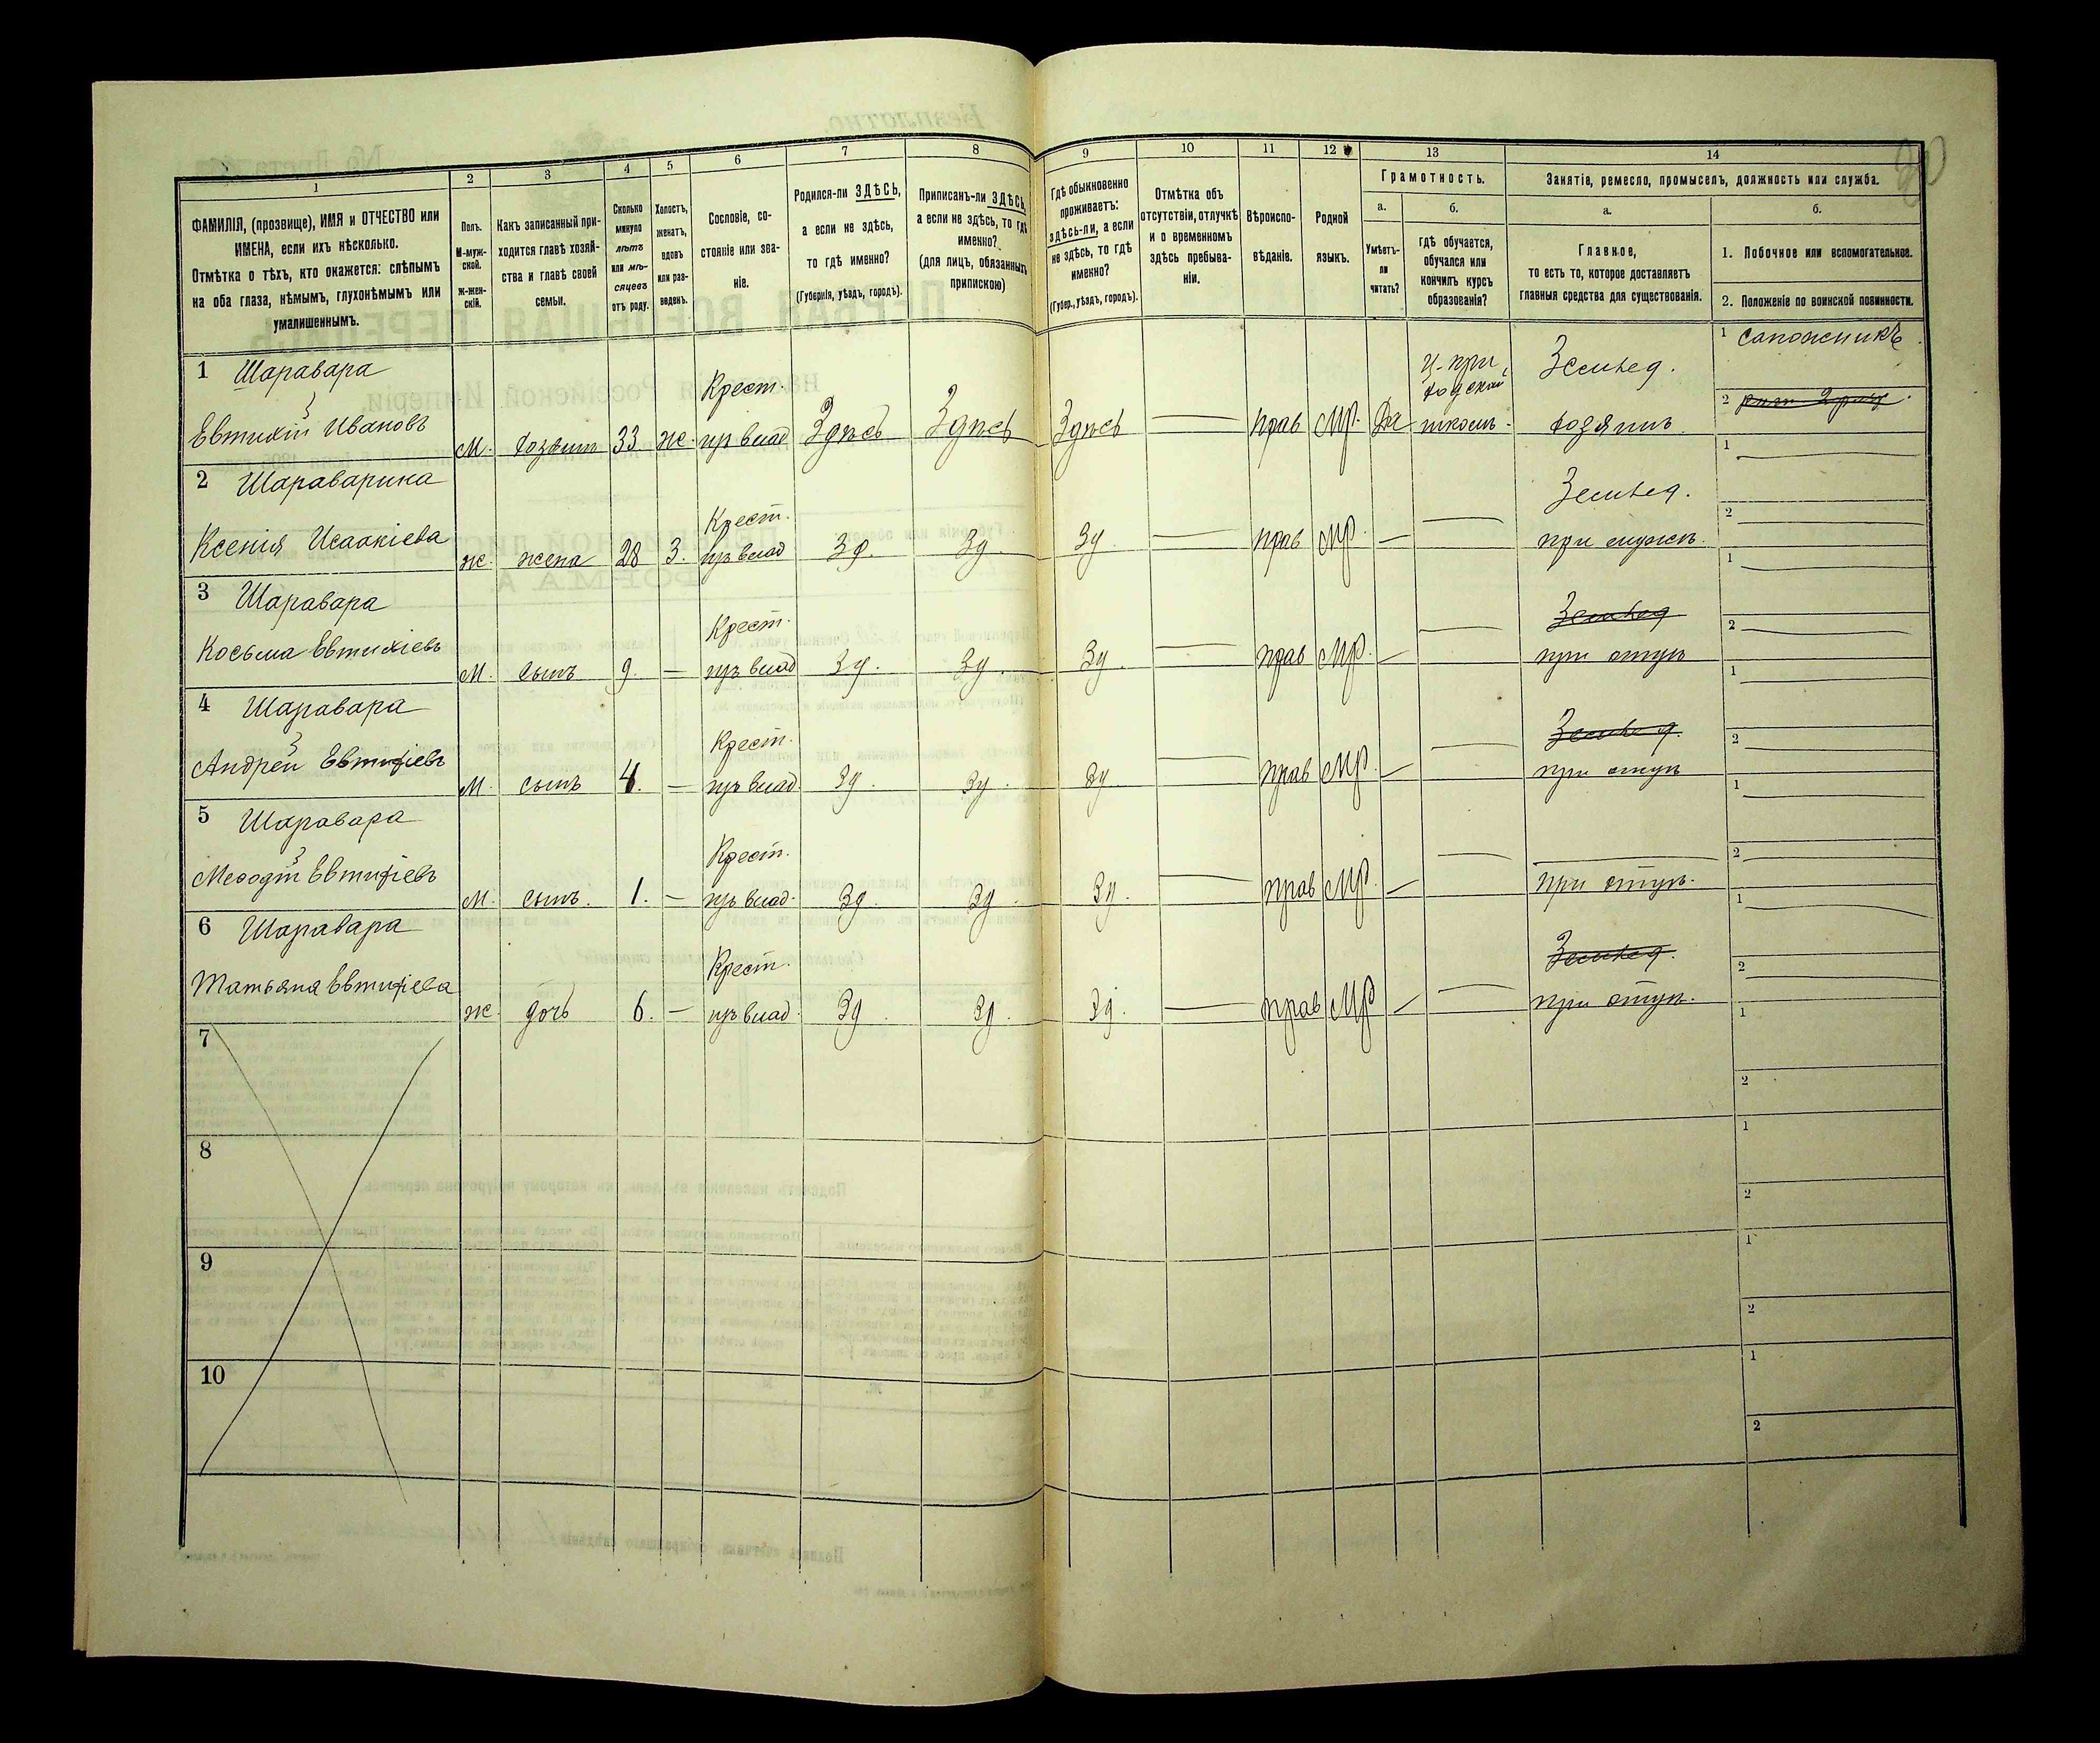 1 2 3 4 5 6 7 8 9 10 11 12 13 14
ФАМИЛІЯ, (прозвище), ИМЯ и ОТЧЕСТВО или
ИМЕНА, если ихъ нѣсколько.
Отмѣтка о тѣхъ, кто окажется: слѣпымъ
на оба глаза, нѣмымъ, глухонѣмымъ или
умалишеннымъ.
Полъ.
М-муж-
ской.
Ж-жен-
скій.
Какъ записанный при-
ходится главѣ хозяй-
ства и главѣ своей
семьи.
Сколько
минуло
лѣтъ
или мѣ-
сяцевъ
отъ роду.
Холостъ,
женатъ,
вдовъ
или раз-
веденъ.
Сословіе, со-
стояніе или зва-
ніе.
Родился-ли ЗДѢСЬ,
а если не здѣсь,
то гдѣ именно?
(Губернія, уѣздъ, городъ).
Приписанъ-ли ЗДѢСЬ,
а если не здѣсь, то гдѣ
именно?
(для лицъ, обязанныхъ
припискою)
Гдѣ обыкновенно
проживаетъ:
здѣсь-ли, а если
не здѣсь, то гдѣ
именно?
(Губер., уѣздъ, городъ).
Отмѣтка объ
отсутствіи, отлучкѣ
и о временномъ
здѣсь пребыва-
ніи.
Вѣроиспо-
вѣданіе.
Родной
языкъ.
Грамотность.
а.
Умѣетъ-
ли
читать?
б.
гдѣ обучается,
обучался или
кончилъ курсъ
образованія?
Занятіе, ремесло, промыселъ, должность или служба.
а.
Главное,
то есть то, которое доставляетъ
главныя средства для существованія.
б.
1. Побочное или вспомогательное.
2. Положеніе по воинской повинности.
1 Шаравара Крест. ц-при Землед. 1 сапожникъ
ходской 2
Евтихій Ивановъ М. хозяинъ 33 ж. пр влад Здѣсь Здѣсь Здѣсь — прав МР. Да школѣ. хозяинъ
2 Шараварина Крест. Землед. 1 —
Ксенія Исаакіева ж. жена 28 З. пр влад Зд. Зд. Зд — прав МР. — — при мужѣ. 2 —
3 Шаравара Крест. Землед 1 —
Косьма Евтихіевъ М. сынъ 9. — пр влад Зд. Зд. Зд. — прав МР. — — при отцѣ 2 —
4 Шаравара Крест. Землед. 1 —
Андрей Евтихіевъ М. сынъ 4. — пр влад. Зд. Зд. Зд. — прав МР. — — при отцѣ 2 —
5 Шаравара Крест. — 1 —
Меѳодій Евтихіевъ М. сынъ. 1. — пр влад. Зд. Зд. Зд. — прав МР. — — при отцѣ. 2 —
6 Шаравара Крест. Землед. 1 —
Татьяна Евтихіева ж. дочь 6. — пр влад. Зд. Зд. Зд. — прав МР — — при отцѣ. 2 —
7 1
2
8 1
2
9 1
2
10 1
2